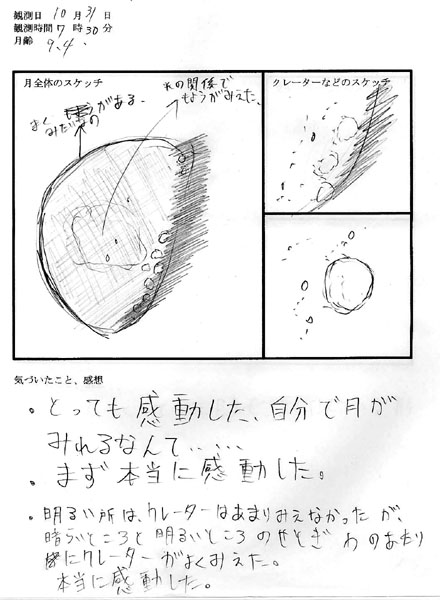 観測日 10 月 31 日
観測時間 7 時 30 分
月齢 9.4.
月全体のスケッチ
まくがある。
みたいなの
光の関係で
もようがみえた。
クレーターなどのスケッチ
気づいたこと、感想
・とっても感動した、自分で月が
みれるなんて……
・まず本当に感動した。
・明るい所は、クレーターはあまりみえなかったが、
暗らいところと明るいところのせとぎわのあたり
にクレーターがよくみえた。
本当に感動した。